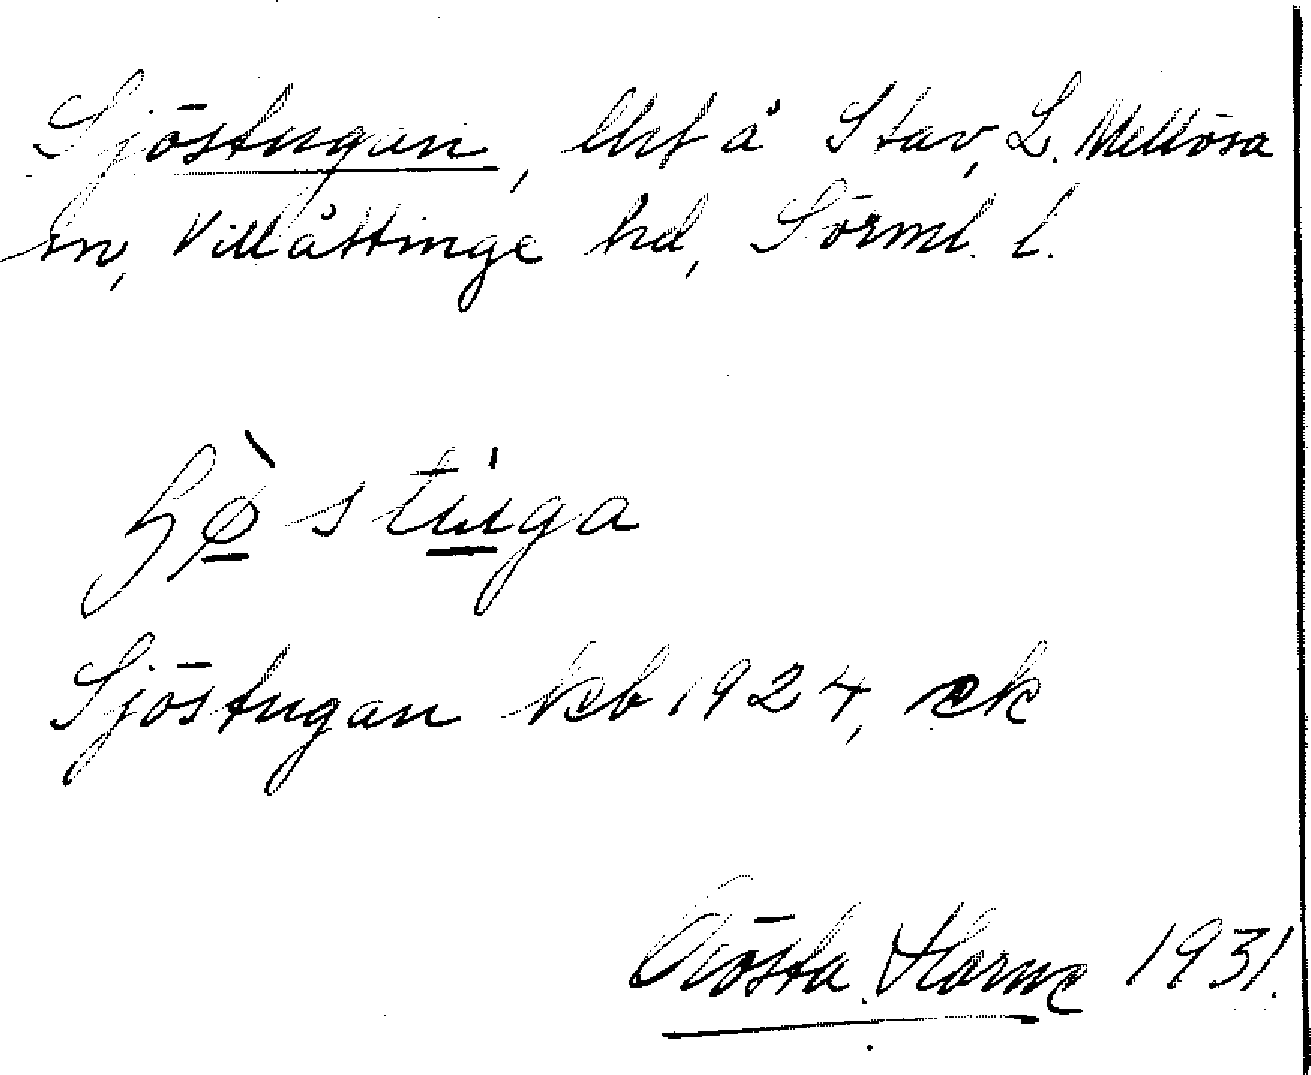 Sjöstugan, lht å Stav, L. Mellösa
sn, Villåttinge hd, Sörml. l.
Sjöstugan kb 1924, ek
Gösta Horne 1931.